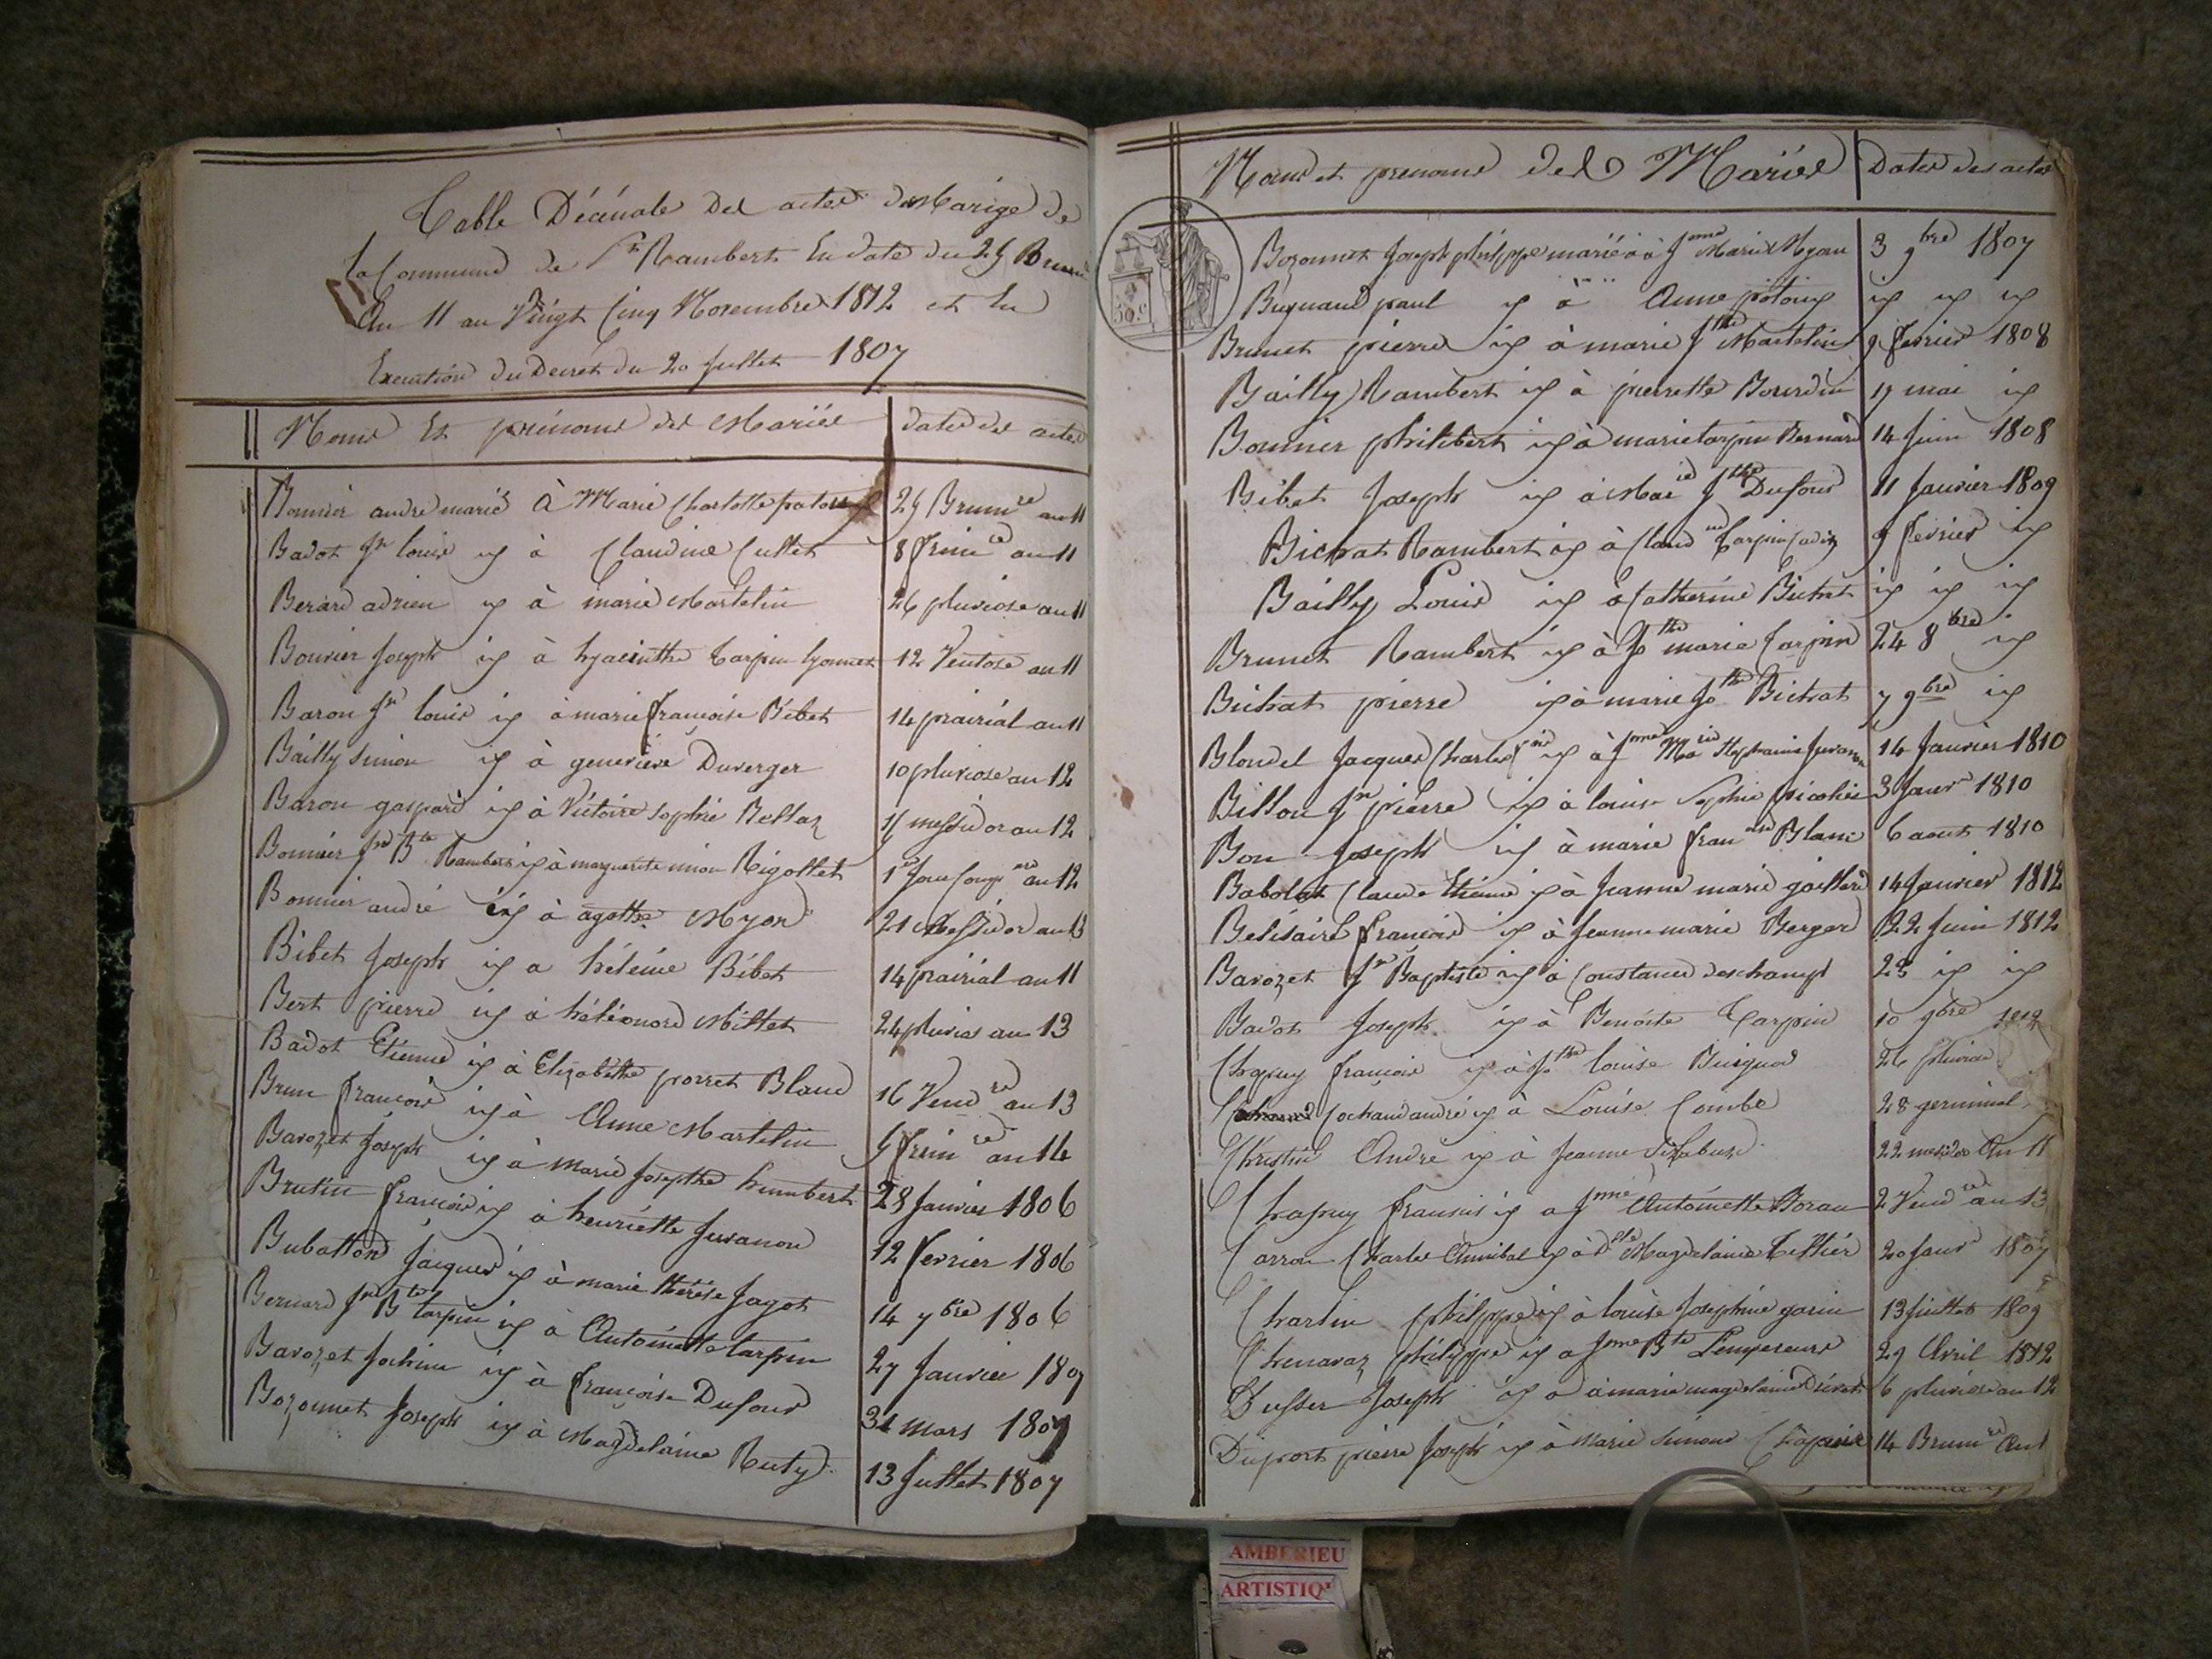 Table Décénale Des actes de Marige de
la Commune de St Rambert En date du 25 Brum
An 11 au Vingt Cinq Novembre 1812 et En
Execution du Decret du 20 Juillet 1807
Noms Et prénoms des Mariés dates des actes
Bonnier andré marié à Marie Charlotte 25 Brumre an 11
Badot Jn louis ig à Claudine Cullet 8 frimre an 11
Berard adrien ig à marie Martelin 26 pluviose an 11
Bouvier Joseph ig à hyacinthe tarpin lyonnet 12 Ventose an 11
Baron Jn louis ig à marie françoise Bibet 14 prairial an 11
Bailly Simon ig à geneviève Duverger 10 pluviose an 12
Baron gaspard ig à Victoire Sophie Rellaz 11 messidor an 12
Bonnier Jn Bte Rambert ig à marguerite ninon Rigollet 1er Jour Comp an 12
Bonnier andré ig à agathe Myon 21 Messidor an 13
Bibet Joseph ig a hélène Bibet 14 prairial an 11
Bert pierre ig à héléonore Millet 24 pluvios an 13
Badot Etienne ig à Elizabethe porret Blanc 16 Vendre an 13
Brun françois ig à Anne Martelin 5 frimre an 14
Bavozet Joseph ig à Marie Josephte humbert 28 Janvier 1806
Brutin françois ig à henriette Juvanon 12 fevrier 1806
Bubatton Jacques ig à marie thérèse Jagot 14 7bre 1806
Bernard Jn Bte tarpin ig à Antoinette tarpin 27 Janvier 1807
Bavozet Jochim ig à françoise Dufour 31 mars 1807
Bozonnet Joseph ig à Magdelaine Ruty 13 Juillet 1807
Noms et prenoms des Mariés Dates des actes
Bozonnet Joseph philippe marié à Jnne Marie Myon 3 9bre 1807
Bugnaud paul ig à Anne ig ig ig
Brunet pierre ig à marie Jthe Martelin 9 fevrier 1808
Bailly Rambert ig à pierrette Bourdin 17 mai ig
Bonnier philibert ig à marie tarpin Bernard 14 Juin 1808
Bibet Joseph ig à Marie Jthe Dufour 11 Janvier 1809
Bichat Rambert ig à Claudine tarpin Cadoz 9 fevrier ig
Bailly Louis ig à Catherine Bichat ig ig ig
Brunet Rambert ig à Jthe marie tarpin 24 8bre ig
Bichat pierre ig à marie Jthe Bichat 7 9bre ig
Blondel Jacques Charles ig à Jnne Marie Stephanie Juvanon 14 Janvier 1810
Billon Jn pierre ig à louise Sophie picolier 3 Janvr 1810
Bon Joseph ig à marie franoise Blanc 6 aout 1810
Babolat Claude Etienne ig à Jeanne marie gaillard 14 Janvier 1812
Belisaire françois ig à Jeanne marie Berger 22 Juin 1812
Bavozet Jn Baptiste ig à Constance deschamps 28 ig ig
Badot Joseph ig à Benoite Tarpin 10 9bre 1812
Chapuy françois ig à Jthe louise Buignod 26 pluviose
Cochaud andré ig à Louise Combe 28 germinal
Christin André ig à Jeanne 22 messidor An 11
Chapuy françois ig a Jnne Antoinette Bozau 2 Vendre an 13
Carron Charles Annibal ig à Dlle Magdelaine Tettier 20 Janvr 1807
Charlin philippe ig à louise Josephine gorin 13 Juillet 1809
Chenavaz philippe ig a Jnne Bte Lempereur 29 Avril 1812
Dusser Joseph ig à marie magdelaine 6 pluviose an 12
Duport pierre Joseph ig à Marie Simone Chapuis 14 Brumre An
AMBERIEU
ARTISTIQ